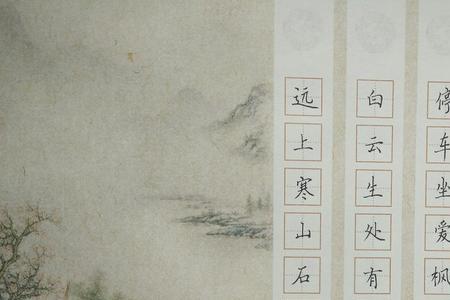 远上寒山石
白云生处有
停车坐爱枫